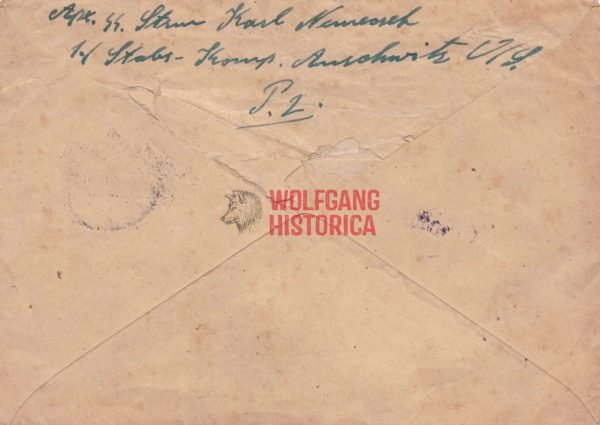 Apx. SS. Strm Karl Nemecsek
1./ Stabs-Komp. Auschwitz O/S.
P. 2.
WOLFGANG
HISTORICA